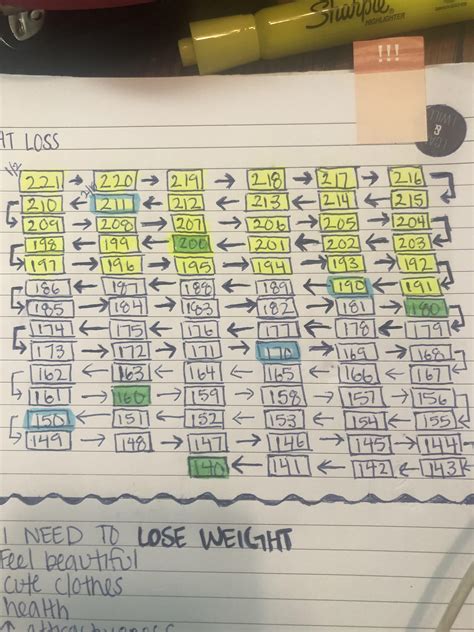 Sharpie
HIGHLIGHTER
!!!
AT LOSS
221 → 220 → 219 → 218 → 217 → 216
210 ← 211 ← 212 ← 213 ← 214 ← 215
209 → 208 → 207 → 206 → 205 → 204
198 ← 199 ← 200 ← 201 ← 202 ← 203
197 → 196 → 195 → 194 → 193 → 192
186 ← 187 ← 188 ← 189 ← 190 ← 191
185 → 184 → 183 → 182 → 181 → 180
174 ← 175 ← 176 ← 177 ← 178 ← 179
173 → 172 → 171 → 170 → 169 → 168
162 ← 163 ← 164 ← 165 ← 166 ← 167
161 → 160 → 159 → 158 → 157 → 156
150 ← 151 ← 152 ← 153 ← 154 ← 155
149 → 148 → 147 → 146 → 145 → 144
140 ← 141 ← 142 ← 143
I NEED TO LOSE WEIGHT
Feel beautiful
cute clothes
health